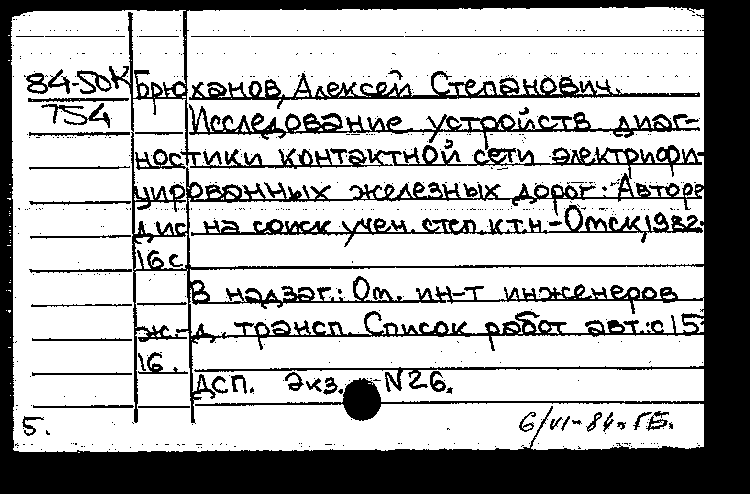 84-50К Брюханов, Алексей Степанович.
754 Исследование устройств диаг-
ностики контактной сети электрифи-
цированных железных дорог: Авторе
дис на соиск учен. степ. к.т.н. - Омск, 1982.
16 с.
В надзаг.: Ом. ин-т инженеров
ж.-д. трансп. Список работ авт.: с 15-
16.
ДСП. Экз. N26.
5. 6/VI-84. ГБ.